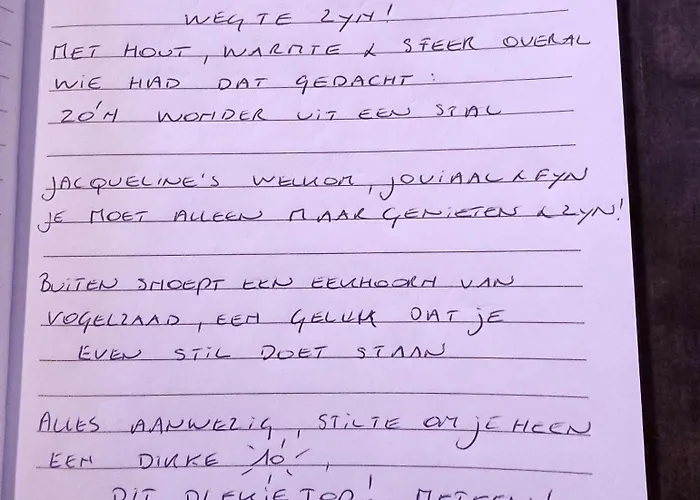 WEG TE ZYN!
MET HOUT, WARMTE & SFEER OVERAL
WIE HAD DAT GEDACHT:
ZO'N WONDER UIT EEN STAL
JACQUELINE'S WELKOM, JOVIAAL & FYN
JE MOET ALLEEN MAAR GENIETEN & ZYN!
BUITEN SNOEPT EEN EEKHOORN VAN
VOGELZAAD, EEN GELUK DAT JE
EVEN STIL DOET STAAN
ALLES AANWEZIG, STILTE OM JE HEEN
EEN DIKKE 10,
DIT PLEKJE TOP!